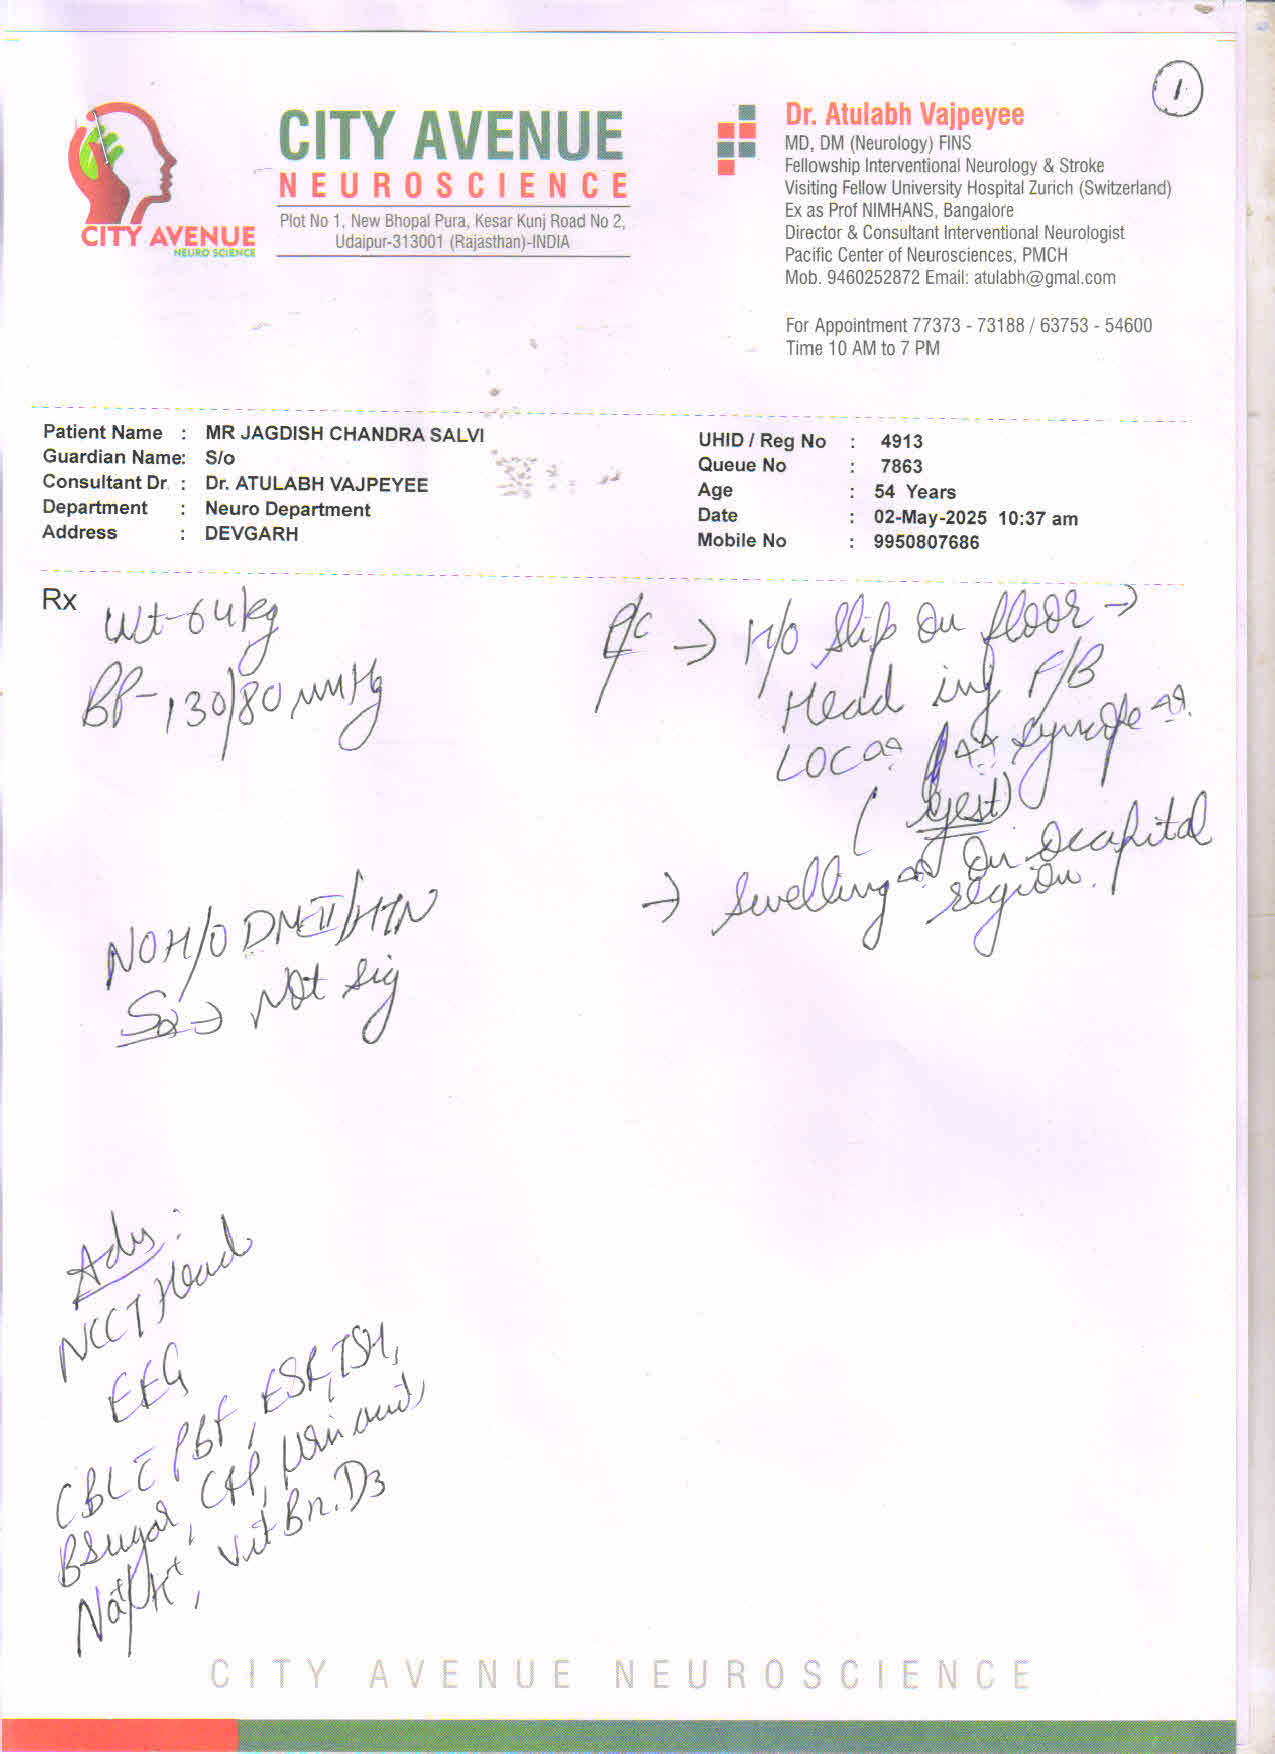 1
CITY AVENUE
NEURO SCIENCE
CITY AVENUE
NEUROSCIENCE
Plot No 1, New Bhopal Pura, Kesar Kunj Road No 2,
Udaipur-313001 (Rajasthan)-INDIA
Dr. Atulabh Vajpeyee
MD, DM (Neurology) FINS
Fellowship Interventional Neurology & Stroke
Visiting Fellow University Hospital Zurich (Switzerland)
Ex as Prof NIMHANS, Bangalore
Director & Consultant Interventional Neurologist
Pacific Center of Neurosciences, PMCH
Mob. 9460252872 Email: atulabh@gmal.com
For Appointment 77373 - 73188 / 63753 - 54600
Time 10 AM to 7 PM
Patient Name : MR JAGDISH CHANDRA SALVI
Guardian Name: S/o
Consultant Dr. : Dr. ATULABH VAJPEYEE
Department : Neuro Department
Address : DEVGARH
UHID / Reg No : 4913
Queue No : 7863
Age : 54 Years
Date : 02-May-2025 10:37 am
Mobile No : 9950807686
Rx
Wt-64kg
BP-130/80 mmHg
→ H/o Slip on floor →
Head inj F/B
LOC syncope
(yest)
→ Swelling on occipital
region.
NO H/O DM II/HTN
→ Not sig
Adv:
NCCT Head
EEG
CBC c PBF, ESR, TSH,
BSugar, Uric acid,
Na+/K+, Vit B12, D3
CITY AVENUE NEUROSCIENCE